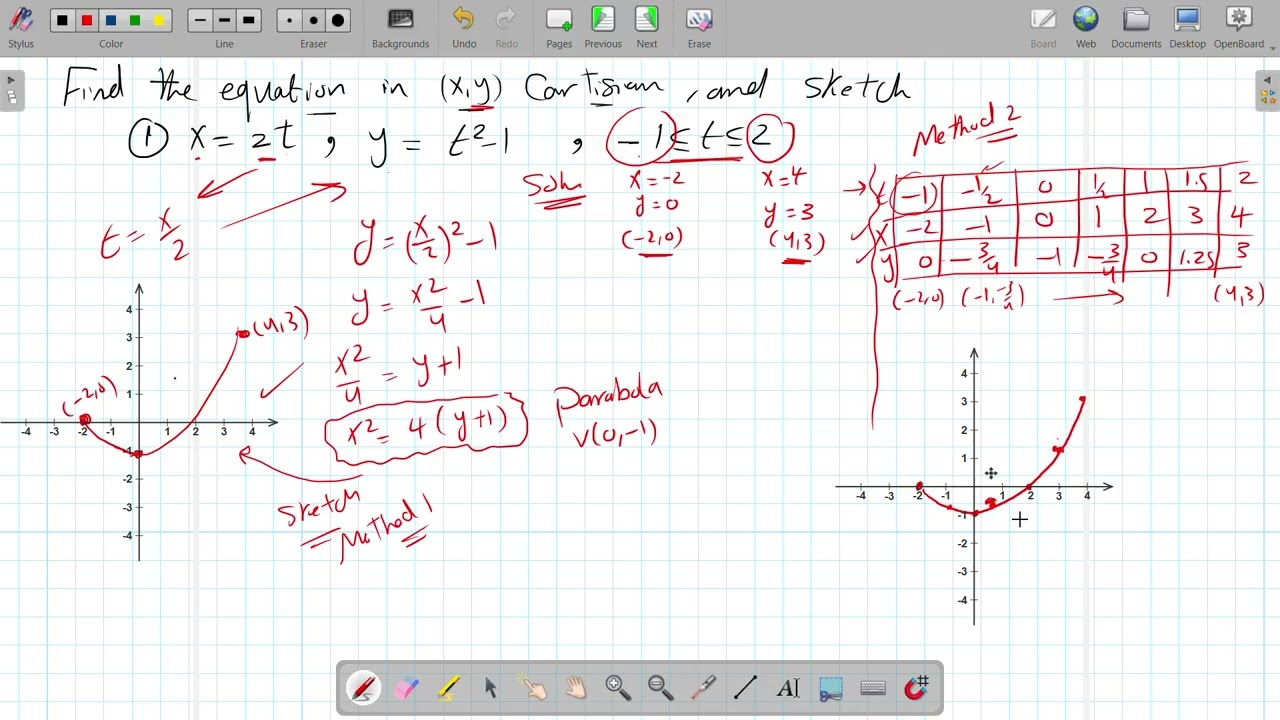 Stylus Color Line Eraser Backgrounds Undo Redo Pages Previous Next Erase Board Web Documents Desktop OpenBoard
Find the equation in (x,y) Cartisian , and sketch
① x = 2t , y = t² - 1 , -1 ≤ t ≤ 2
Soln
x = -2
y = 0
(-2,0)
x = 4
y = 3
(4,3)
t = x/2
y = (x/2)² - 1
y = x²/4 - 1
x²/4 = y + 1
x² = 4(y+1)
Parabola
V(0,-1)
Sketch
Method 1
(-2,0)
(4,3)
4
3
2
1
-4 -3 -2 -1 1 2 3 4
-1
-2
-3
-4
Method 2
t -1 -1/2 0 1/2 1 1.5 2
x -2 -1 0 1 2 3 4
y 0 -3/4 -1 -3/4 0 1.25 3
(-2,0) (-1,-3/4) (4,3)
4
3
2
1
-4 -3 -2 1 2 3 4
-1
-2
-3
-4
AI